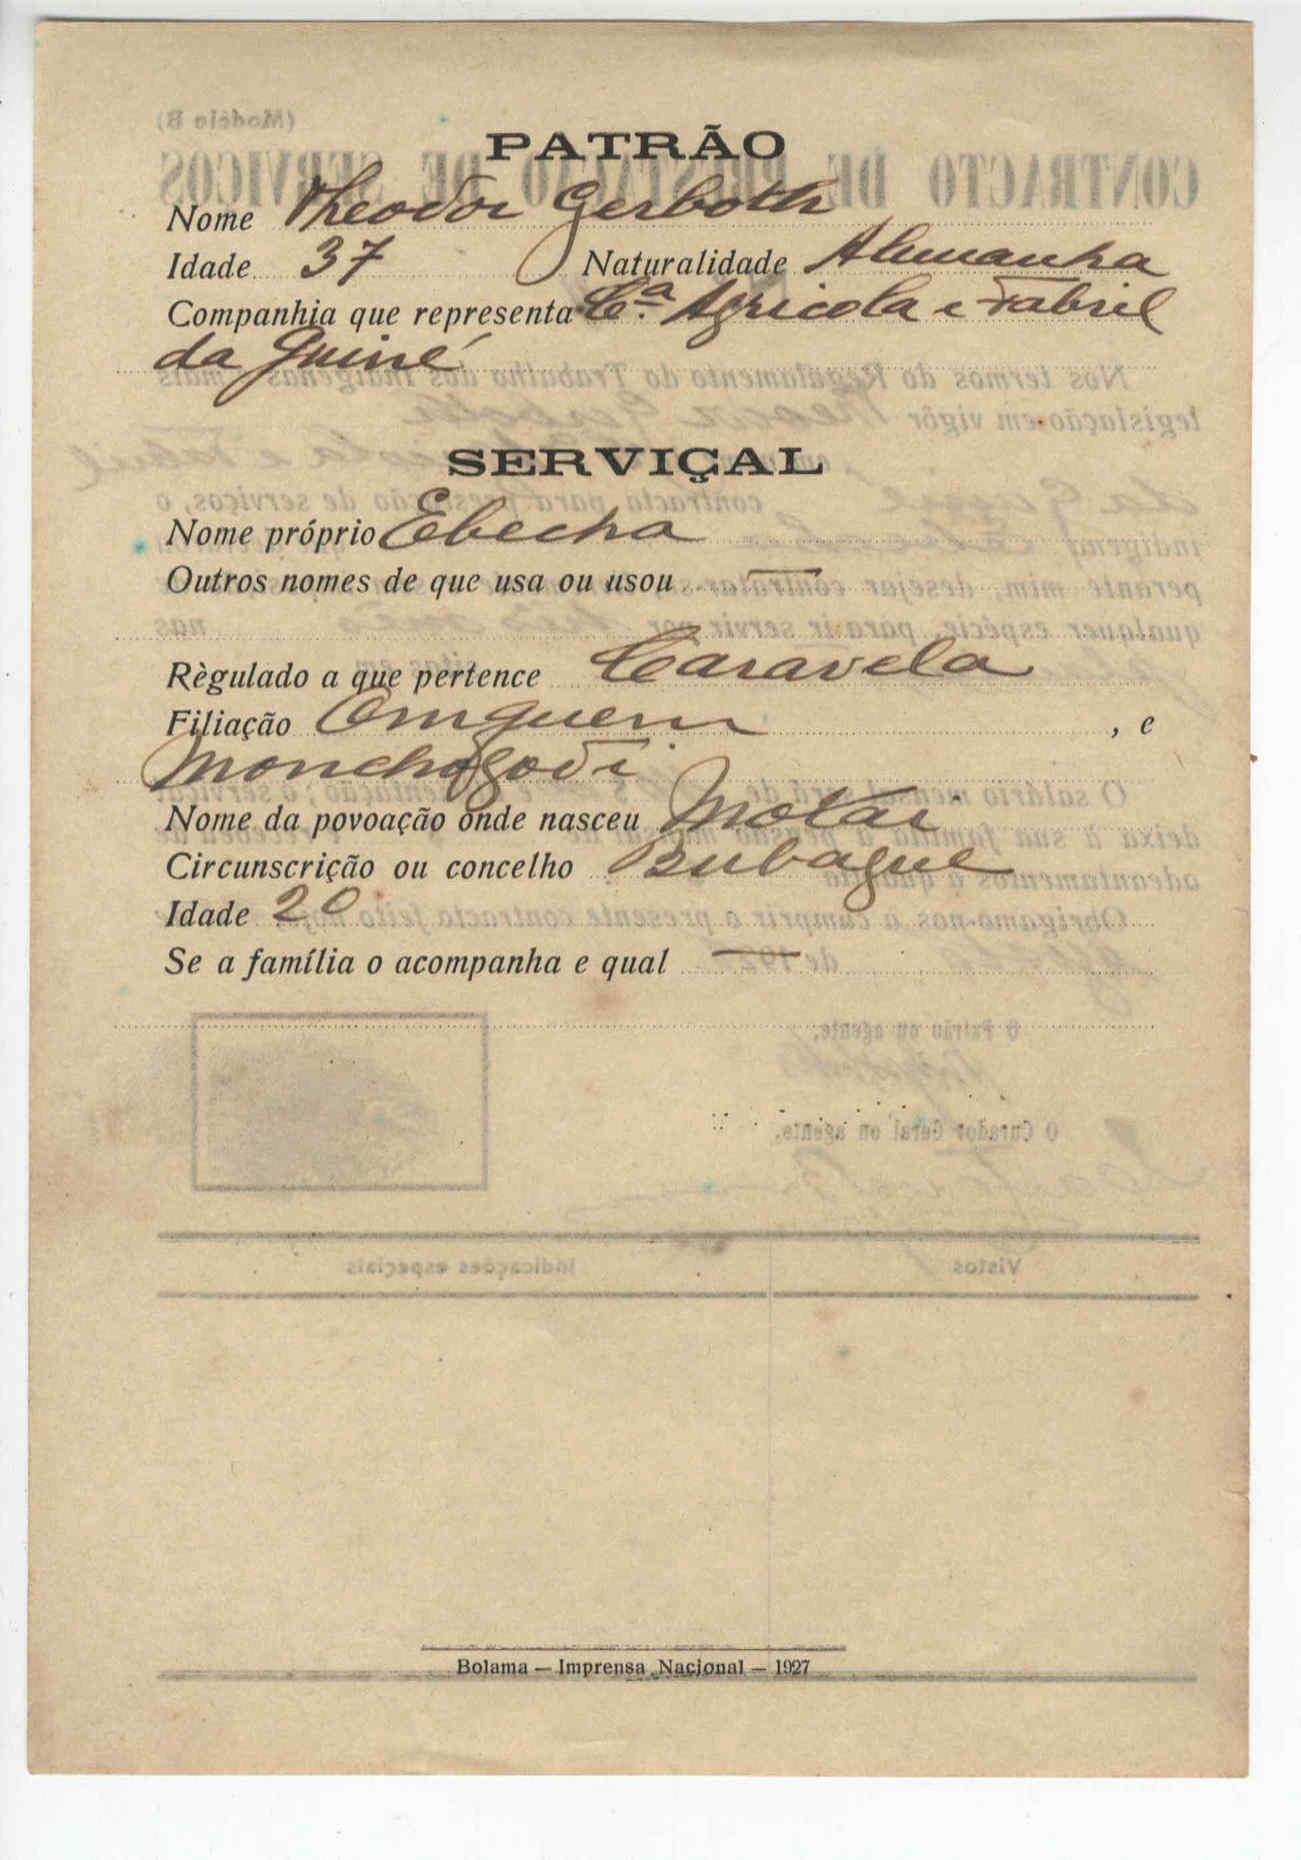 PATRÃO
Nome Theodor Gerboth
Idade 37 Naturalidade Alemanha
Companhia que representa Cª Agricola e Fabril
da Guiné
SERVIÇAL
Nome próprio Ebecha
Outros nomes de que usa ou usou —
Règulado a que pertence Caravela
Filiação Omguem, e
Nome da povoação onde nasceu Motai
Circunscrição ou concelho Bubaque
Idade 20
Se a família o acompanha e qual —
Bolama — Imprensa Nacional — 1927